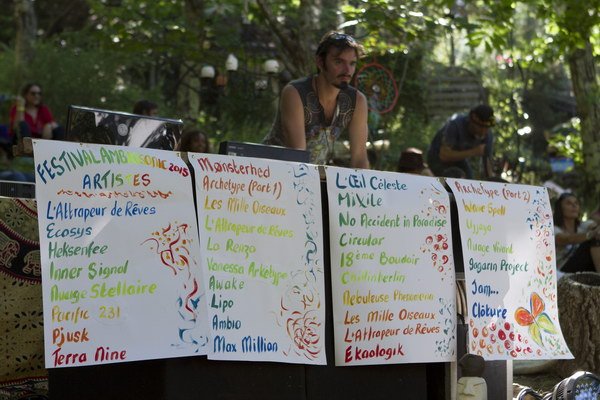 FESTIVAL AMBIOSONIC 2015
ARTISTES
L'Attrapeur de Rêves
Ecosys
Heksenfee
Inner Signal
Nuage Stellaire
Pacific 231
Pjusk
Terra Nine
Monsterhed
Archetype (Part 1)
Les Mille Oiseaux
L'Attrapeur de Rêves
Lo Renzo
Vanessa Arketype
Awake
Lipo
Ambio
Max Million
L'Œil Céleste
MiXile
No Accident in Paradise
Circular
18ème Boudoir
Chillinberlin
Nébuleuse Phénomena
Les Mille Oiseaux
L'Attrapeur de Rêves
Ekaologik
Archetype (Part 2)
Wave Spell
Ujjaya
Nuage Vivant
Gagarin Project
Jam...
Clôture